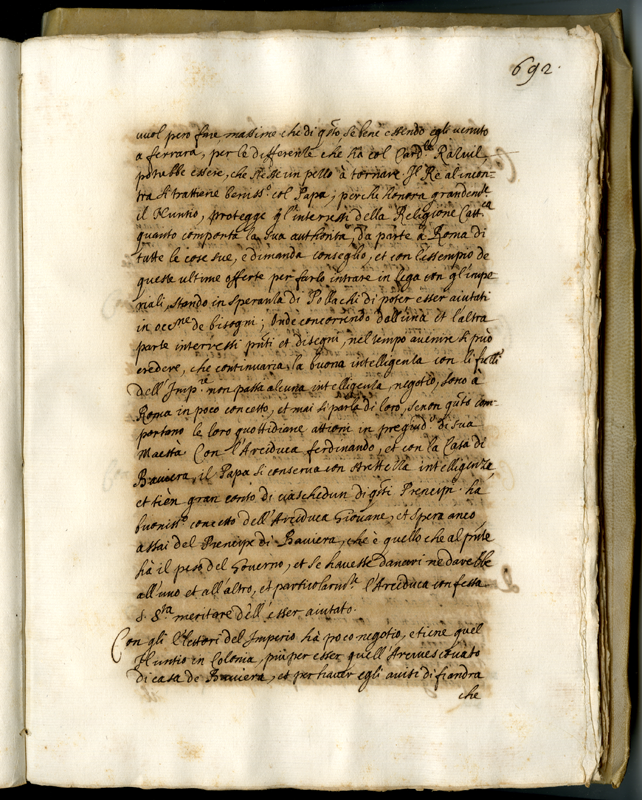 692.
vuol pero fare massime che di q.sto se bene essendo egli venuto
a ferrara, per le differentie che ha col Card.le
potrebbe essere, che stesse un pezzo à tornare Il Re al incon-
tra si trattiene beniss.o col Papa; perche honora grandem.te
il Nuntio, protegge gl'interessi della Religione Catt.ca
quanto comporta la sua authorità, da parte à Roma di
tutte le cose sue, e dimanda conseglio, et con l'essempio de
queste ultime offerte per farlo intrare in lega con gl'impe
riali, stando in speranza di Pollachi di poter esser aiutati
in occ.ne de bisogni; Onde concorrendo dell'una et l'altra
parte interessi p.nti et disegni, nel tempo avenire si può
credere, che continuarà la buona intelligenza con li f.elli
dell'Imp.re non passa alcuna intelligenza, negotio, sono à
Roma in poco concetto, et mai si parla di loro, se non q.to com-
portano le loro quottidiane attioni in pregiud.o di Sua
Maestà Con l'Arciduca ferdinando, et con la Casa di
Baviera, il Papa si conserva con stretta intelligenza
et tien gran conto di ciaschedun di q.sti Prencipi. ha
buoniss.o concetto dell'Arciduca Giovane, et spera anco
assai del Prencipe di Baviera, che è quello che al p.nte
hà il peso del Governo, et se havesse danari ne darebbe
all'uno et all'altro, et particolarm.te l'Arciduca confessa
S. S.tà meritare dell'esser aiutato.
Con gli Elettori del Imperio hà poco negotio, e tiene quel
Nuntio in Colonia, più per esser quell'Arcivescovato
di casa de Baviera, et per haver egli avisi di fiandra
che